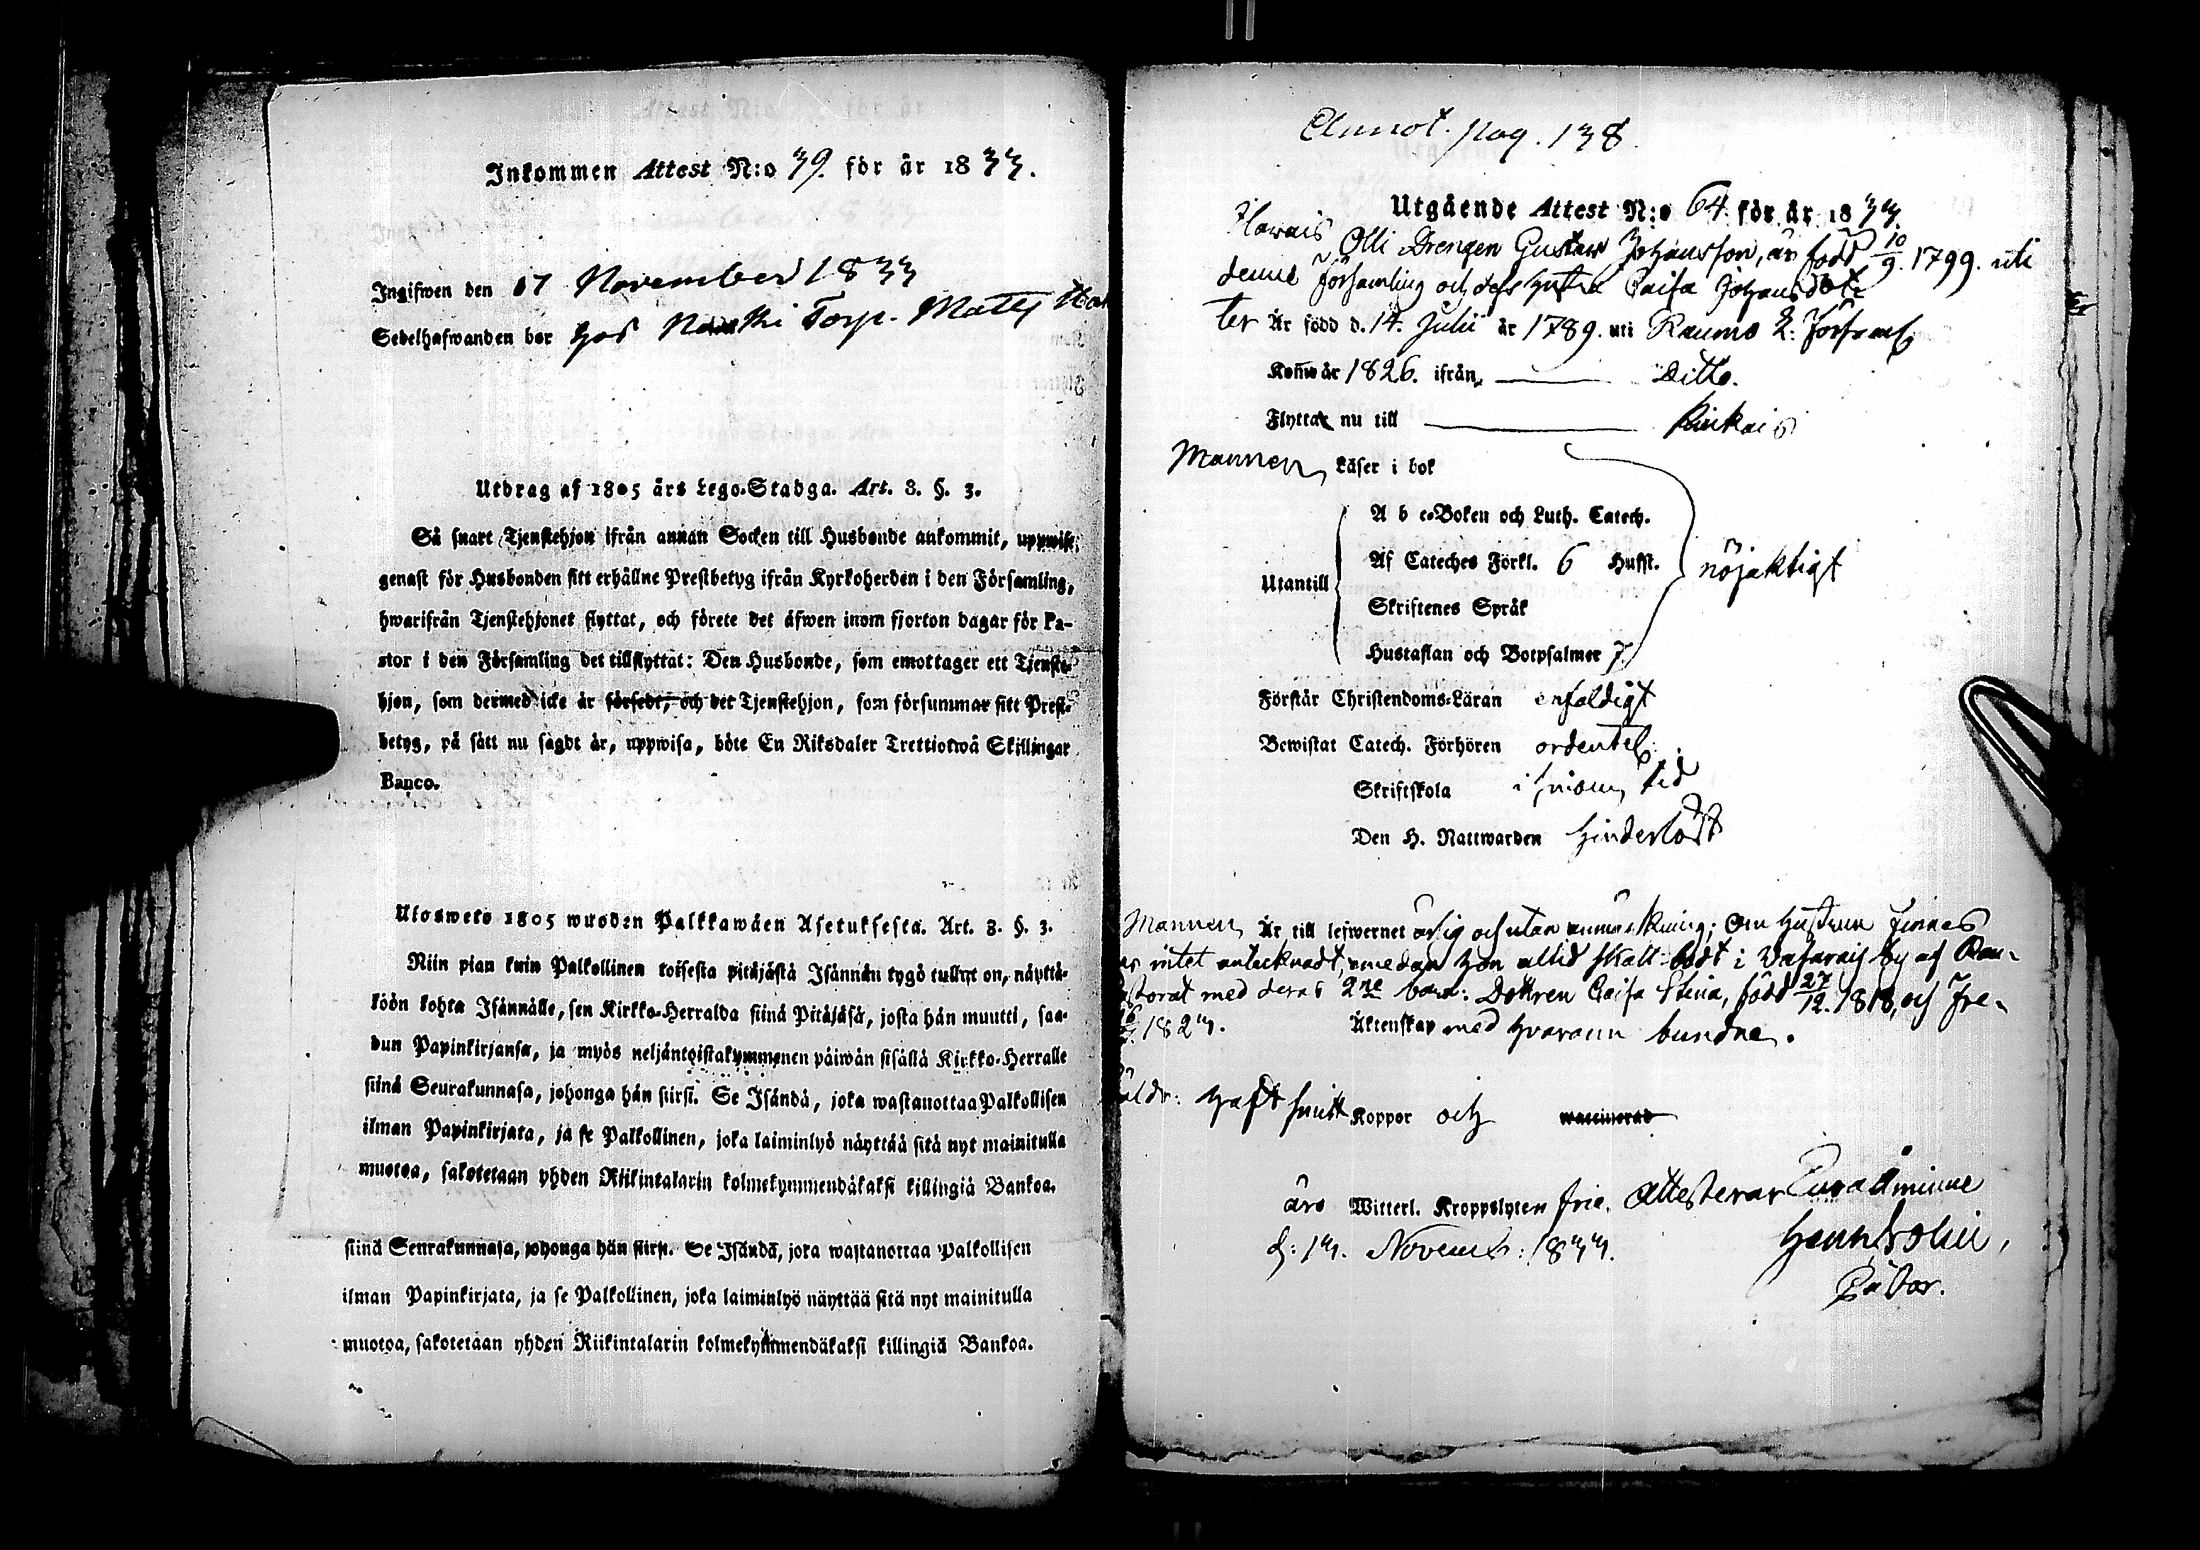 Inkommen Attest N:o 39. för år 1833.
Ingifwen den 17 November 1833
Sedelhafwanden bor hos Torp. Matts
Utdrag af 1805 års Lego-Stadga. Art. 8. §. 3.
Så snart Tjenstehjon ifrån annan Socken till Husbonde ankommit, uppwise
genast för Husbonden sitt erhållne Prestbetyg ifrån Kyrkoherden i den Församling,
hwarifrån Tjenstehjonet flyttat, och förete det äfwen inom fjorton dagar för Pa-
stor i den Församling det tillflyttat: Den Husbonde, som emottager ett Tjenste-
hjon, som dermed icke är försedt, och det Tjenstehjon, som försummar sitt Prest-
betyg, på sätt nu sagdt är, uppwisa, böte En Riksdaler Trettiotwå Skillingar
Banco.
Ulosweto 1805 wuoden Palkkawäen Asetuksesta. Art. 8. §. 3.
Niin pian kuin Palkollinen toisesta pitäjästä Isännän tygö tullut on, näyttä-
köön kohta Isännälle, sen Kirkko-Herralda siinä Pitäjäsä, josta hän muutti, saa-
dun Papinkirjansa, ja myös neljäntoistakymmenen päiwän sisällä Kirkko-Herralle
siinä Seurakunnasa, johonga hän siirsi. Se Isändä, joka wastanottaa Palkollisen
ilman Papinkirjata, ja se Palkollinen, joka laiminlyö näyttää sitä nyt mainitulla
muotoa, sakotetaan yhden Riikintalarin kolmekymmendäkaksi killingiä Bankoa.
siinä Seurakunnasa, johonga hän siirsi. Se Isändä, joka wastanottaa Palkollisen
ilman Papinkirjata, ja se Palkollinen, joka laiminlyö näyttää sitä nyt mainitulla
muotoa, sakotetaan yhden Riikintalarin kolmekymmendäkaksi killingiä Bankoa.
Annot. pag. 138.
Utgående Attest N:o 64. för år 1833.
Olli Drengen Gustav Johansson, är född 10/9. 1799. uti
denne Församling och dess hustru Caisa Johansdot-
ter Är född d. 14. Julii år 1789. uti Raumo L: Förs
Kom̄ år 1826. ifrån Ditto.
Flyttar nu till Kiukais
Mannen Läser i bok
A b c-Boken och Luth. Catech.
Utantill Af Cateches Förkl. 6 Hufst. nöjaktigt
Skriftenes Språk
Hustaflan och Botpsalmer 7.
Förstår Christendoms-Läran enfaldigt
Bewistat Catech. Förhören ordentel.
Skriftskola i sinom tid
Den H. Nattwarden hinderlöst
Mannen Är till lefwernet ärlig och utan anmärkning: Om Hustrun finnes
intet antecknadt, emedan hon altid skall bodt i by af
med deras 2ne barn: Dottren Caisa Stina, född 27/12. 1818, och Fre-
1823. Äktenskap med hvarann bundne.
haft smitt Koppor och waccinerad
äro Witterl. Kroppslyten frie. Attesterar Eura Åminne
d: 13. Novemb: 1833.